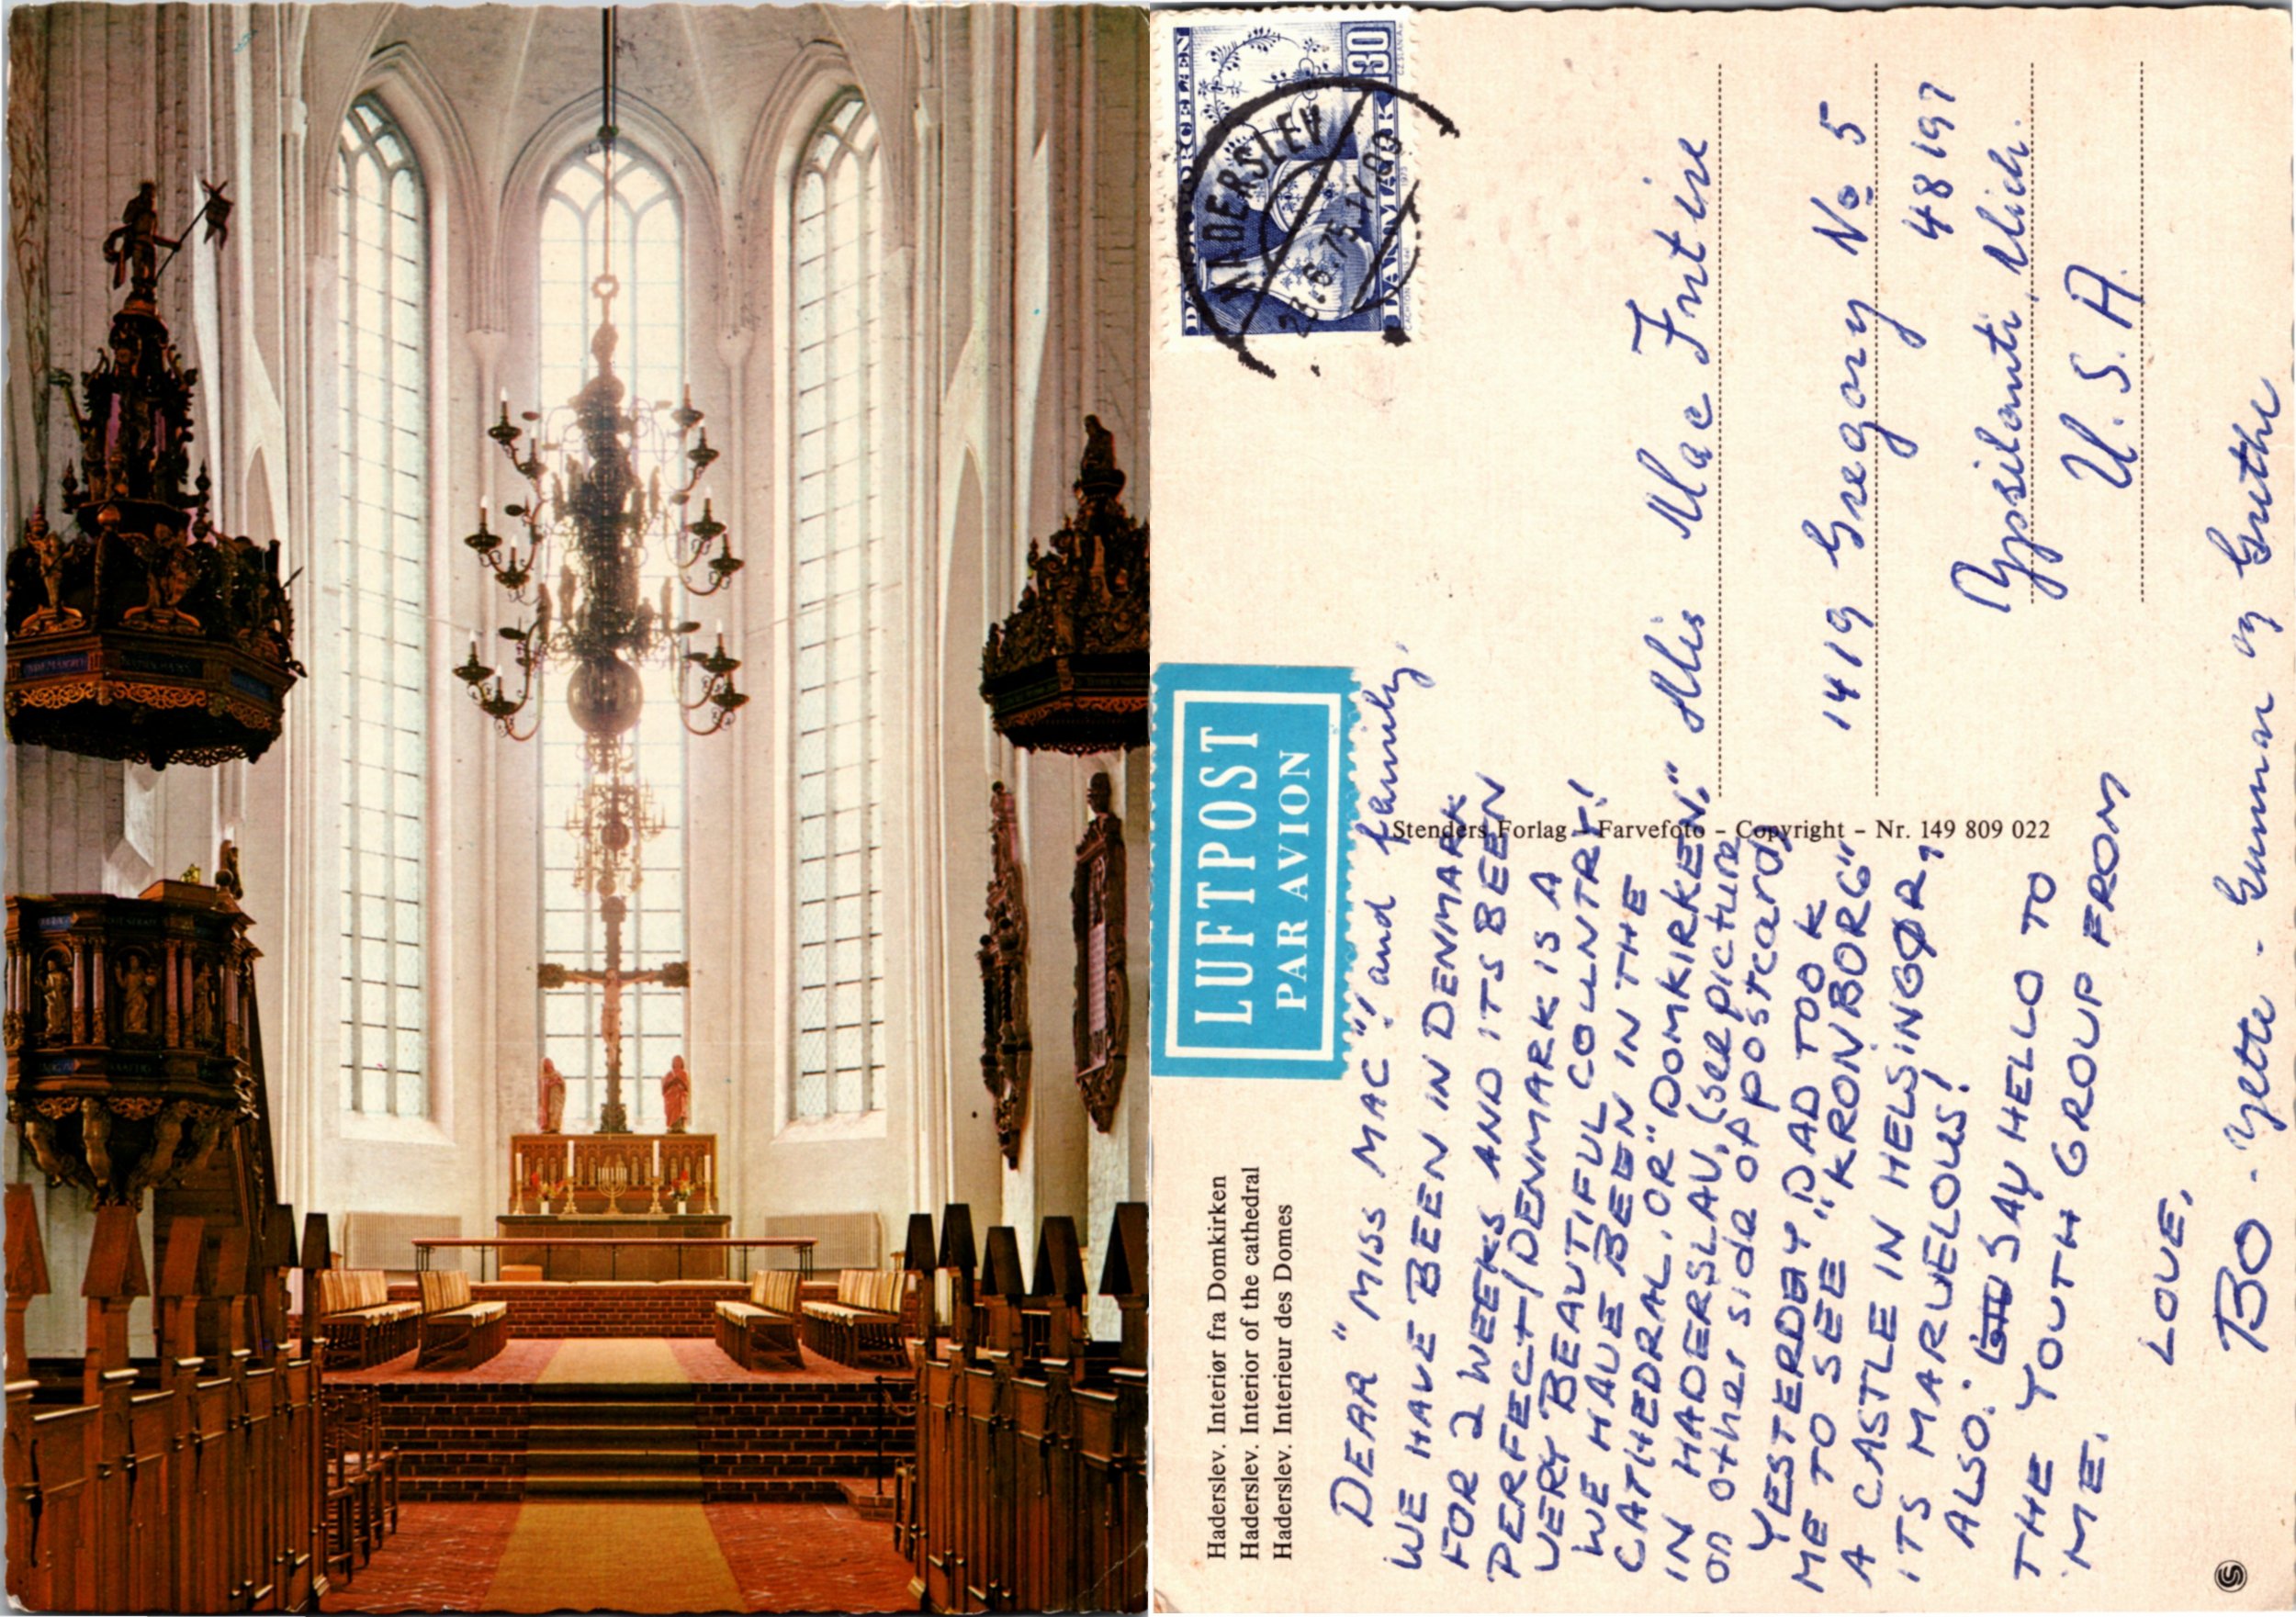 Haderslev. Interiør fra Domkirken
Haderslev. Interior of the cathedral
Haderslev. Interieur des Domes
LUFTPOST
PAR AVION
130
DANMARK
HADERSLEV
DEAR "MISS MAC"! and family.
WE HAVE BEEN IN DENMARK
FOR 2 WEEKS AND ITS BEEN
PERFECT! DENMARK IS A
VERY BEAUTIFUL COUNTRY!
WE HAVE BEEN IN THE
CATHEDRAL. OR "DOMKIRKEN."
IN HADERSLAV, (see picture
on other side of postcard)
YESTERDAY DAD TOOK
ME TO SEE "KRONBORG"
A CASTLE IN HELSINGØR,
ITS MARVELOUS!
ALSO. SAY HELLO TO
THE YOUTH GROUP FROM
ME.
LOVE,
BO - Yette - Gunnar og Grethe
Stenders Forlag - Farvefoto - Copyright - Nr. 149 809 022
Mis Mac Intire
1419 Gregory No 5
48197
Ypsilanti, Mich.
U.S.A.